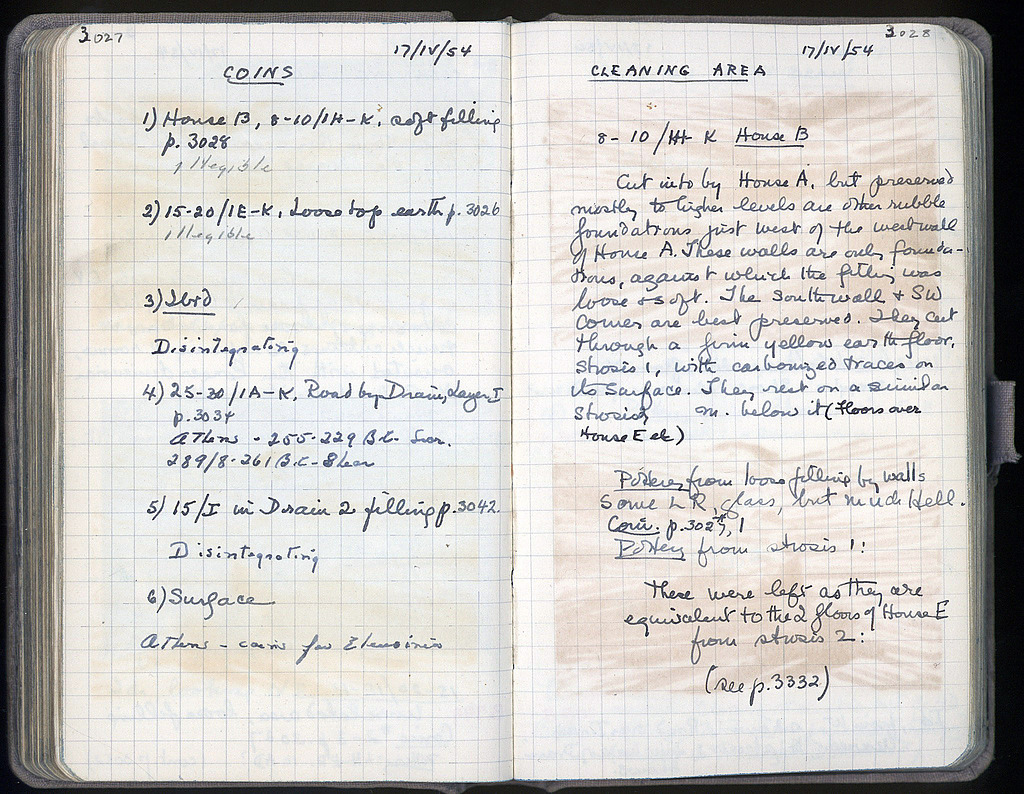 3027
17/IV/54
COINS
1) House B, 8-10/1H-K, soft filling
p. 3028
illegible
2) 15-20/1E-K, Loose top earth p. 3026
illegible
3) Ibid
Disintegrating
4) 25-30/1A-K, Road by Drain, Layer I
p. 3034
Athens - 255-229 B.C. - Svor.
289/8-261 B.C. - Shear
5) 15/I in Drain 2 filling p. 3042.
Disintegrating
6) Surface
Athens - coin for Eleusinia
3028
17/IV/54
CLEANING AREA
8-10/ - K House B
Cut into by House A, but preserved
mostly to higher levels are other rubble
foundations just west of the west wall
of House A. These walls are only founda-
tions, against which the filling was
loose & soft. The south wall & SW
corner are best preserved. They cut
through a firm yellow earth floor,
strosis 1, with carbonized traces on
its surface. They rest on a similar
strosis m. below it (Floors over
House E etc)
Pottery from loose filling by walls
Some LR, glass, but much Hell.
Coin: p. 3027, 1
Pottery from strosis 1:
These were left as they are
equivalent to the 2 floors of House E
from strosis 2:
(see p. 3332)